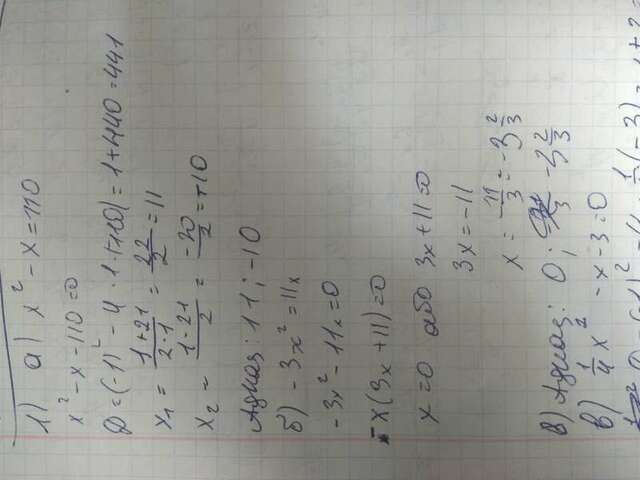 1) а) x² - x = 110
x² - x - 110 = 0
D = (-1)² - 4 · 1 · (-110) = 1 + 440 = 441
x₁ = \frac{1+21}{2·1} = \frac{22}{2} = 11
x₂ = \frac{1-21}{2} = \frac{-20}{2} = -10
Адказ: 11; -10
б) -3x² = 11x
-3x² - 11x = 0
-x(3x + 11) = 0
x = 0 або 3x + 11 = 0
3x = -11
x = -\frac{11}{3} = -3\frac{2}{3}
в) Адказ: 0; -3\frac{2}{3}
в) \frac{1}{4}x² - x - 3 = 0